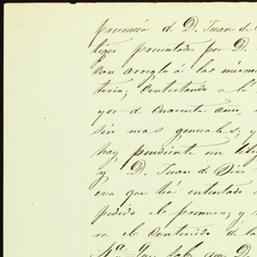 presencia d. D. Juan de
tigos presentados por D.
con arreglo á las mismas
torio; contestando a l
yor d cuarenta años,
sin mas generales; y
hay pendiente un
y D. Juan de Dios
eva que ha entablado
pedido el primero; y
ra el contenido de la
que D.